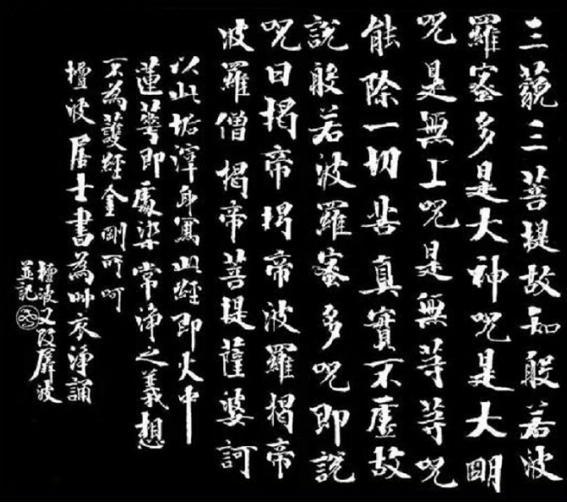 三藐三菩提故知般若波
羅蜜多是大神呪是大明
呪是無上呪是無等等呪
能除一切苦真實不虛故
說般若波羅蜜多呪即說
呪曰揭帝揭帝波羅揭帝
波羅僧揭帝菩提薩婆訶
以此垢滓身寫此經即火中
蓮華即處染常淨之義想
不為護經金剛所呵
檀波居士書為艸衣淨誦
檀波又犀波
並記